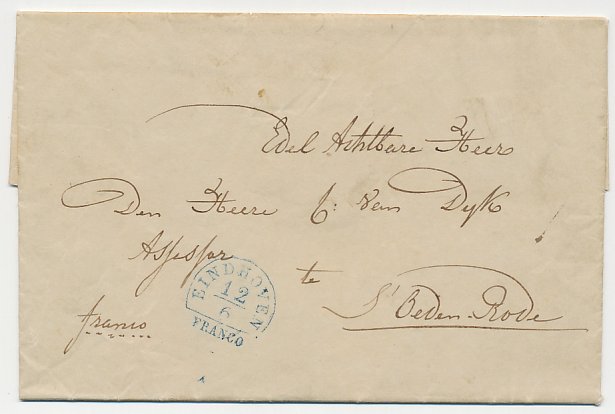 Edel Achtbare Heer
Den Heere C: van Dyk
Assessor
te
St Oeden-Rode
franco
EINDHOVEN
12
6
FRANCO